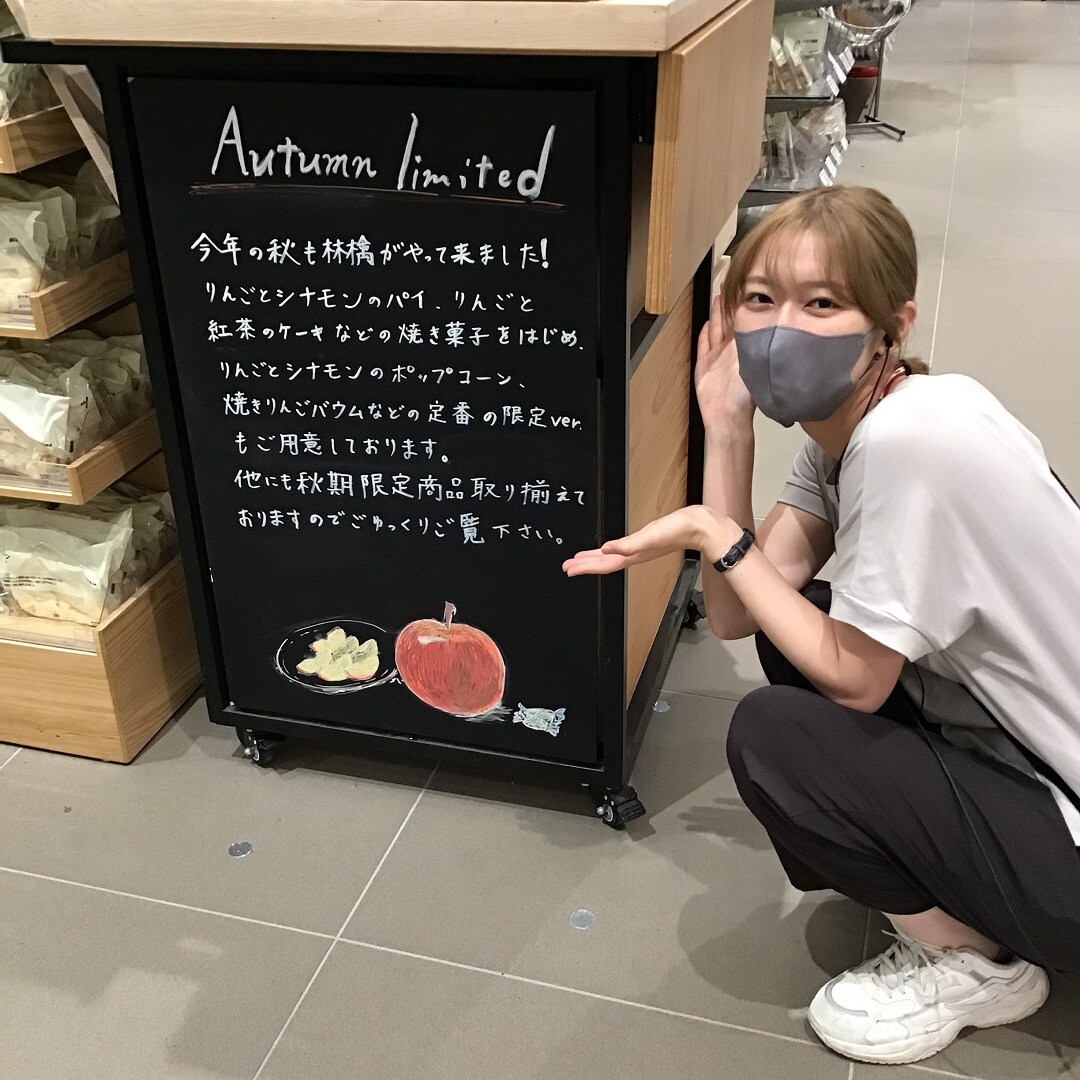 Autumn limited
今年の秋も林檎がやって来ました!
りんごとシナモンのパイ、りんごと
紅茶のケーキなどの焼き菓子をはじめ、
りんごとシナモンのポップコーン、
焼きりんごバウムなどの定番の限定ver.
もご用意しております。
他にも秋期限定商品取り揃えて
おりますのでごゆっくりご覧下さい。